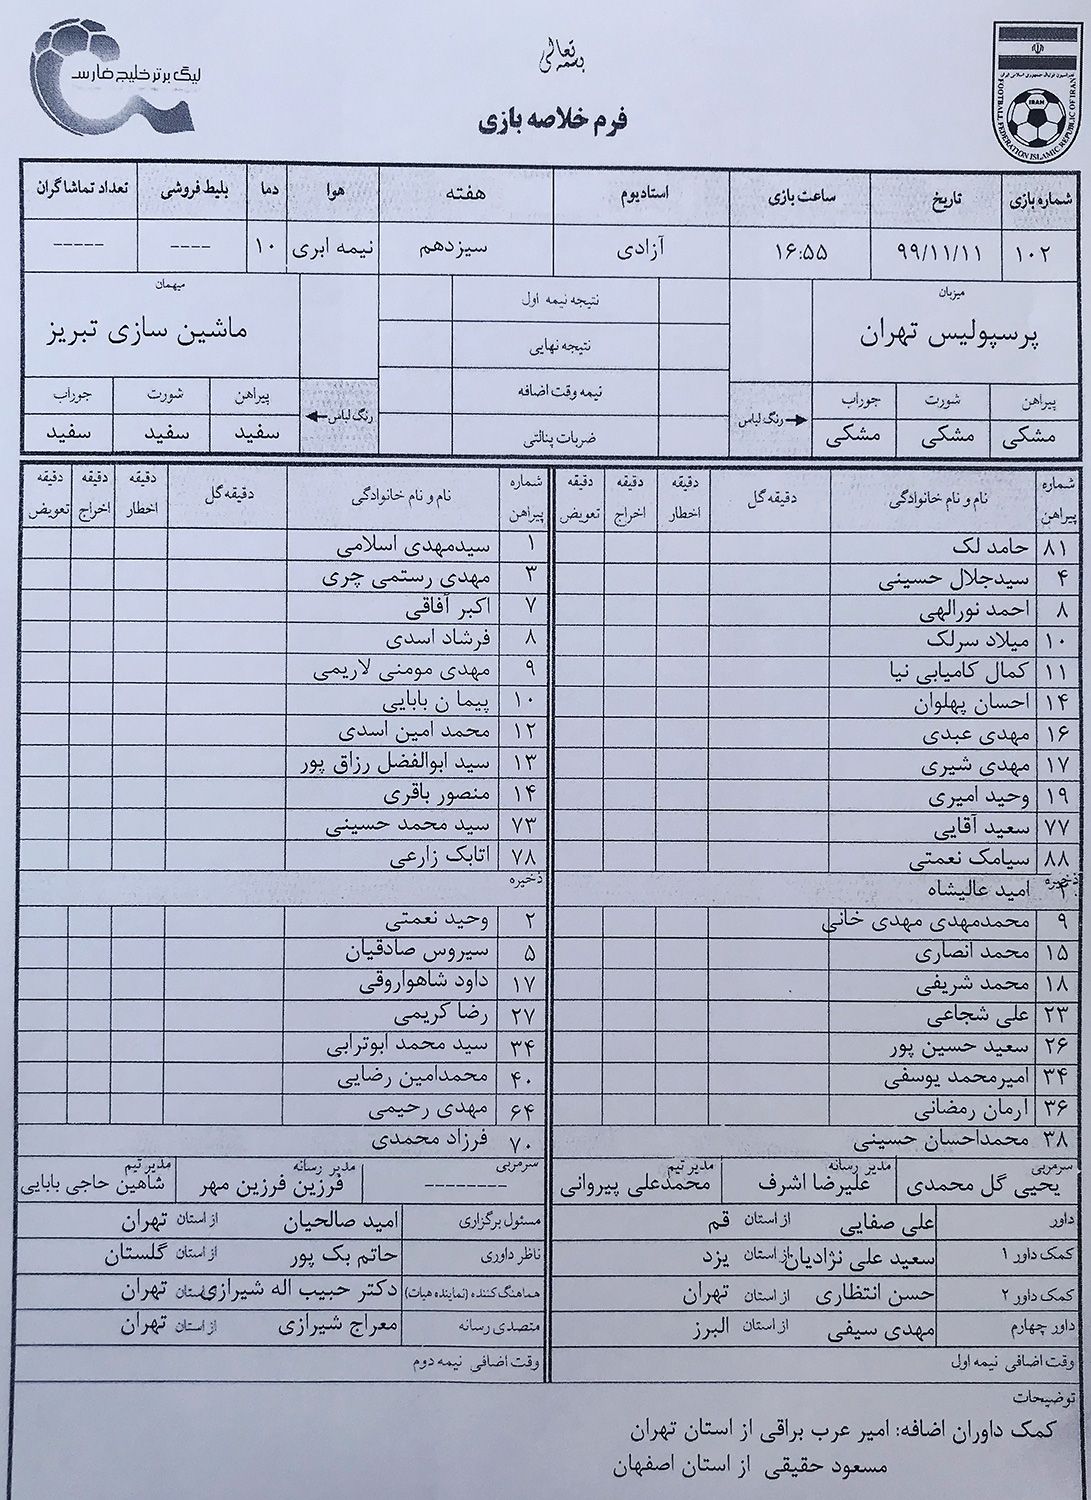 بسمه تعالی
لیگ برتر خلیج فارس
فدراسیون فوتبال جمهوری اسلامی ایران
IRAN
FOOTBALL FEDERATION ISLAMIC REPUBLIC OF IRAN
فرم خلاصه بازی
شماره بازی تاریخ ساعت بازی استادیوم هفته هوا دما بلیط فروشی تعداد تماشاگران
۱۰۲ ۹۹/۱۱/۱۱ ۱۶:۵۵ آزادی سیزدهم نیمه ابری ۱۰ ---- -----
میزبان
پرسپولیس تهران
پیراهن شورت جوراب
مشکی مشکی مشکی
رنگ لباس
نتیجه نیمه اول
نتیجه نهایی
نیمه وقت اضافه
ضربات پنالتی
میهمان
ماشین سازی تبریز
رنگ لباس
پیراهن شورت جوراب
سفید سفید سفید
شماره پیراهن نام و نام خانوادگی دقیقه گل دقیقه اخطار دقیقه اخراج دقیقه تعویض
۸۱ حامد لک
۴ سیدجلال حسینی
۸ احمد نورالهی
۱۰ میلاد سرلک
۱۱ کمال کامیابی نیا
۱۴ احسان پهلوان
۱۶ مهدی عبدی
۱۷ مهدی شیری
۱۹ وحید امیری
۷۷ سعید آقایی
۸۸ سیامک نعمتی
ذخیره
۲ امید عالیشاه
۹ محمدمهدی مهدی خانی
۱۵ محمد انصاری
۱۸ محمد شریفی
۲۳ علی شجاعی
۲۶ سعید حسین پور
۳۴ امیرمحمد یوسفی
۳۶ آرمان رمضانی
۳۸ محمداحسان حسینی
سرمربی یحیی گل محمدی مدیر رسانه علیرضا اشرف مدیر تیم محمدعلی پیروانی
داور علی صفایی از استان قم
کمک داور ۱ سعید علی نژادیان از استان یزد
کمک داور ۲ حسن انتظاری از استان تهران
داور چهارم مهدی سیفی از استان البرز
وقت اضافی نیمه اول
شماره پیراهن نام و نام خانوادگی دقیقه گل دقیقه اخطار دقیقه اخراج دقیقه تعویض
۱ سیدمهدی اسلامی
۳ مهدی رستمی چری
۷ اکبر آفاقی
۸ فرشاد اسدی
۹ مهدی مومنی لاریمی
۱۰ پیما ن بابایی
۱۲ محمد امین اسدی
۱۳ سید ابوالفضل رزاق پور
۱۴ منصور باقری
۷۳ سید محمد حسینی
۷۸ اتابک زارعی
ذخیره
۲ وحید نعمتی
۵ سیروس صادقیان
۱۷ داود شاهواروقی
۲۷ رضا کریمی
۳۴ سید محمد ابوترابی
۴۰ محمدامین رضایی
۶۴ مهدی رحیمی
۷۰ فرزاد محمدی
سرمربی --------- مدیر رسانه فرزین فرزین مهر مدیر تیم شاهین حاجی بابایی
مسئول برگزاری امید صالحیان از استان تهران
ناظر داوری حاتم بک پور از استان گلستان
هماهنگ کننده (نماینده هیات) دکتر حبیب اله شیرازی استان تهران
متصدی رسانه معراج شیرازی از استان تهران
وقت اضافی نیمه دوم
توضیحات
کمک داوران اضافه: امیر عرب براقی از استان تهران
مسعود حقیقی از استان اصفهان